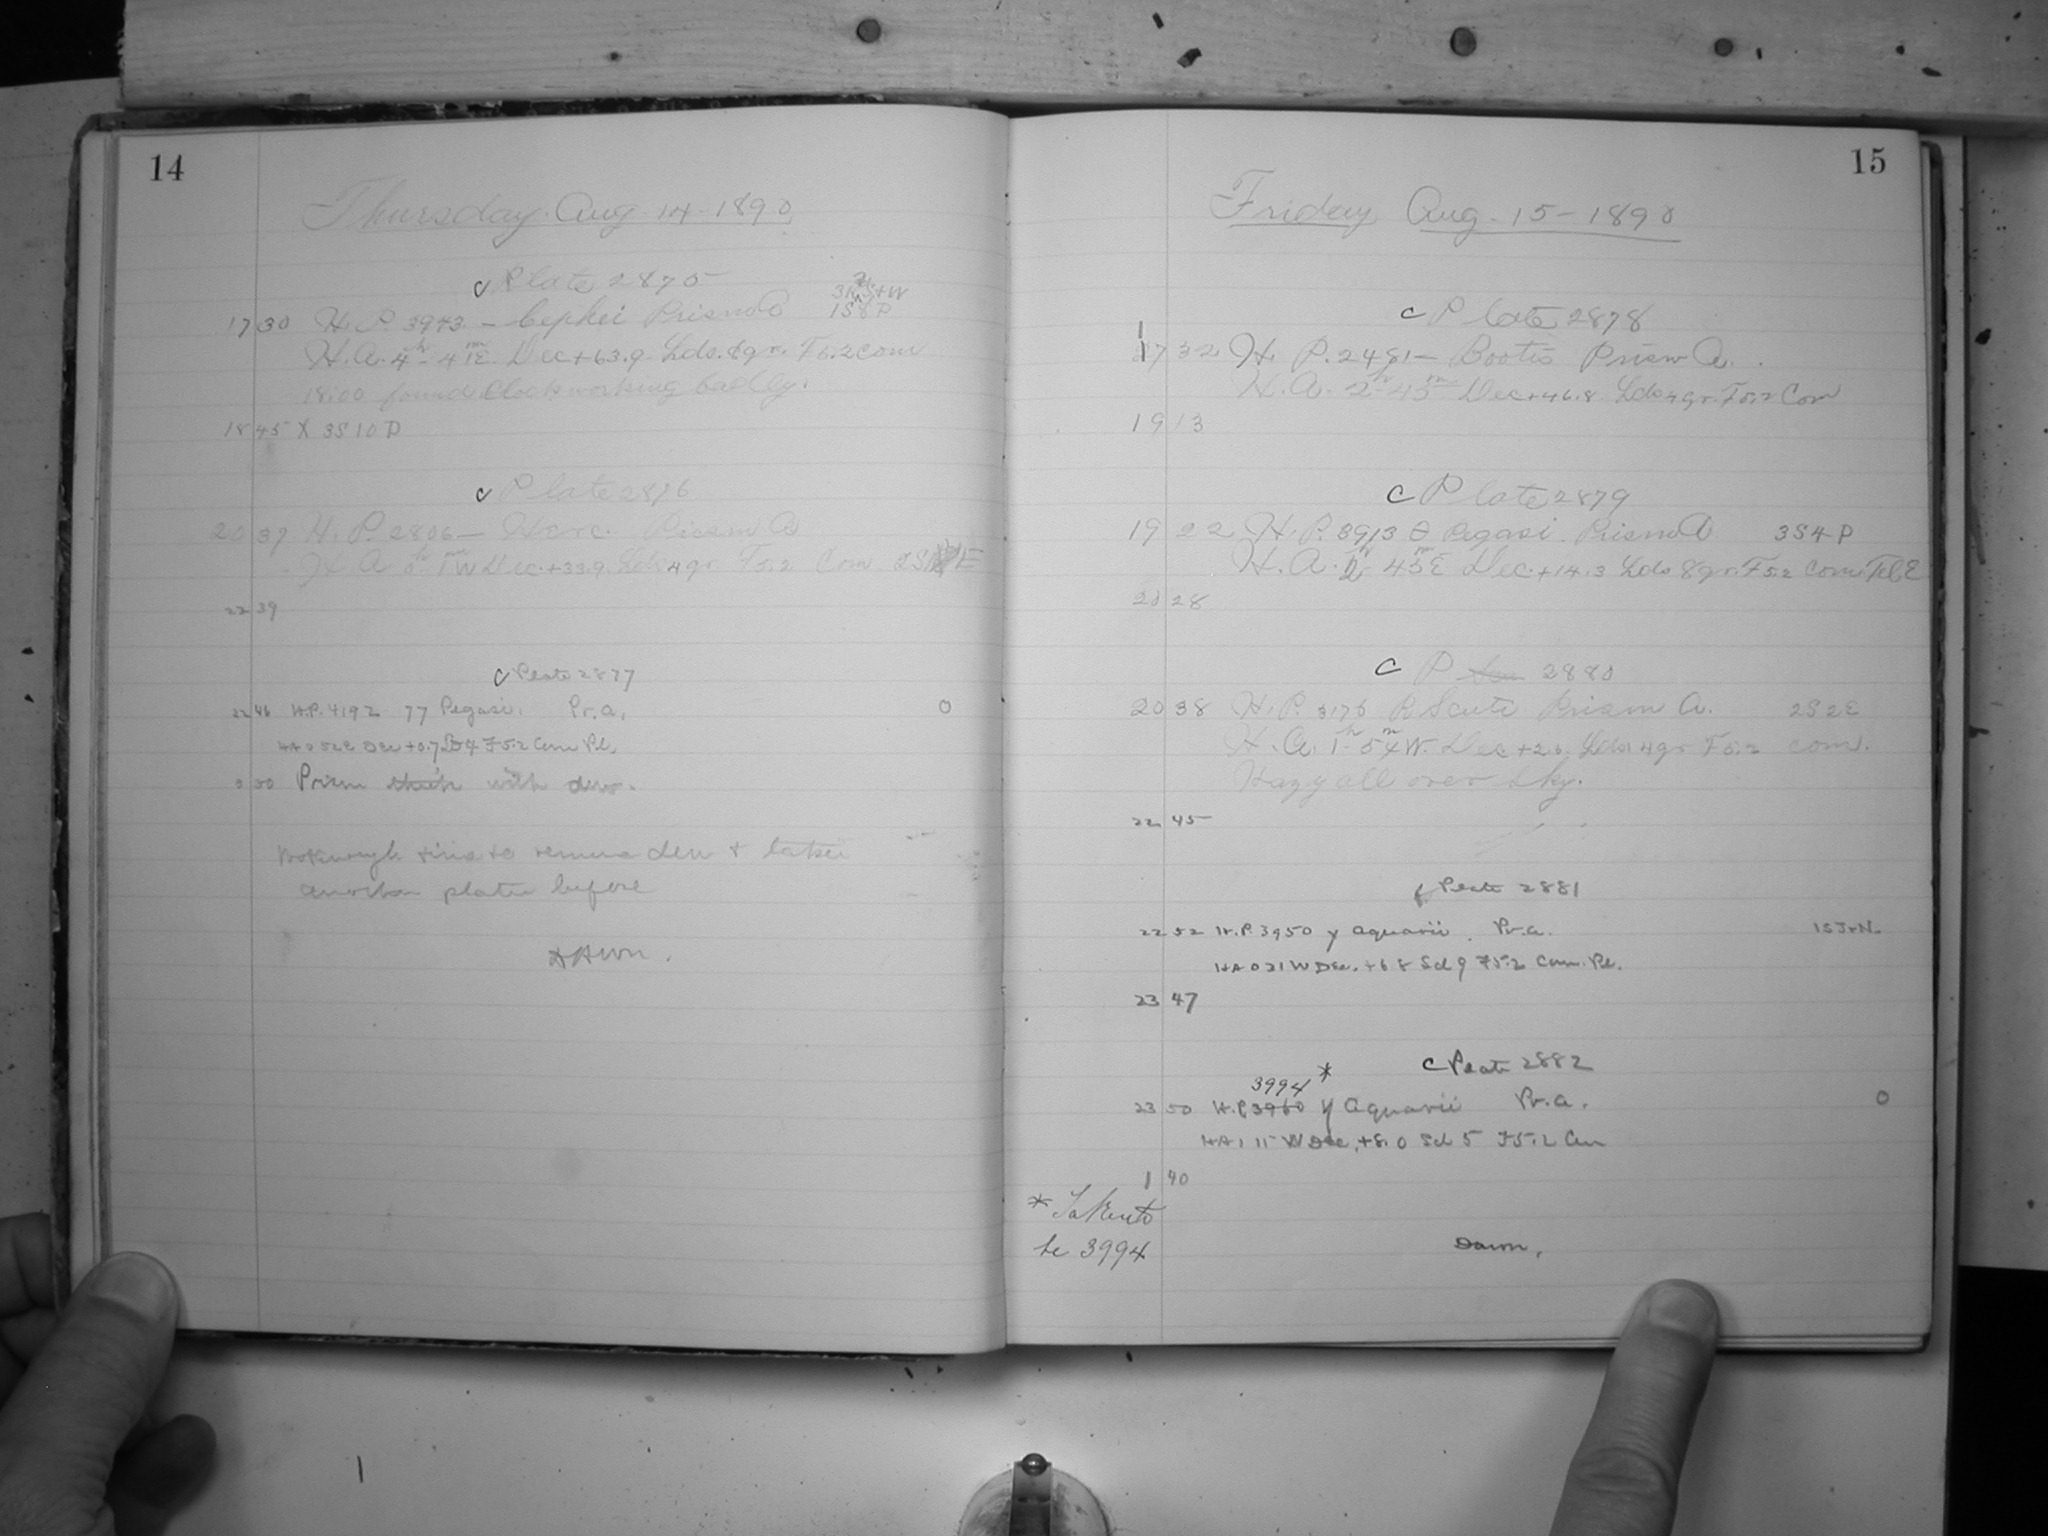 14
Thursday Aug 14-1890
c Plate 2875
17 30 H. P. 3973 - Cephei Prism A
1S8P
H.A. 4h-4mE. Dec+63.9 Lds. 8gr. F5.2 Com
18:00 found Clock working badly.
18 45 X 3S 10 P
c Plate 2876
20 37 H. P. 2806 - Herc. Prism A
H. A 0h 1m W Dec.+33.9. Lds 4gr. F5.2 Com 2S E
22 39
c Plate 2877
22 46 H.P. 4192 77 Pegasi. Pr. a. 0
HA 0 52 E Dec +0.7 F5.2 Com Pl.
0 30 Prism thick with dew.
Not enough time to remove dew + take
another plate before
DAWN.
15
Friday Aug-15-1890
c Plate 2878
17 32 H. P. 2481 - Bootis Prism A.
H. A. 2h-45m Dec+46.8 Lds 4gr. F5.2 Com
19 13
c Plate 2879
19 22 H. P. 3913 θ Pegasi Prism A 3S4P
H. A. 2h 45mE Dec.+14.3 Lds 8gr. F5.2 Com. Tel. E
20 28
c P 2880
20 38 H. P. 3176 R Scuti Prism A. 2S2E
H. A. 1h-54m W. Dec+2.6. Lds 4gr F5.2 Com.
Hazy all over Sky.
22 45
c Plate 2881
22 52 H.P. 3950 γ Aquarii. Pr. a.
HA 0 21 W Dec. +6 8 Scl 9 F5.2 Com. Pl.
23 47
c Plate 2882
3994 *
23 50 H.P. 3960 γ Aquarii Pr. a. 0
HA 1 15 W Dec. +8.0 Scl 5 F5.2 Cm
1 40
* Taken to
be 3994
Dawn.